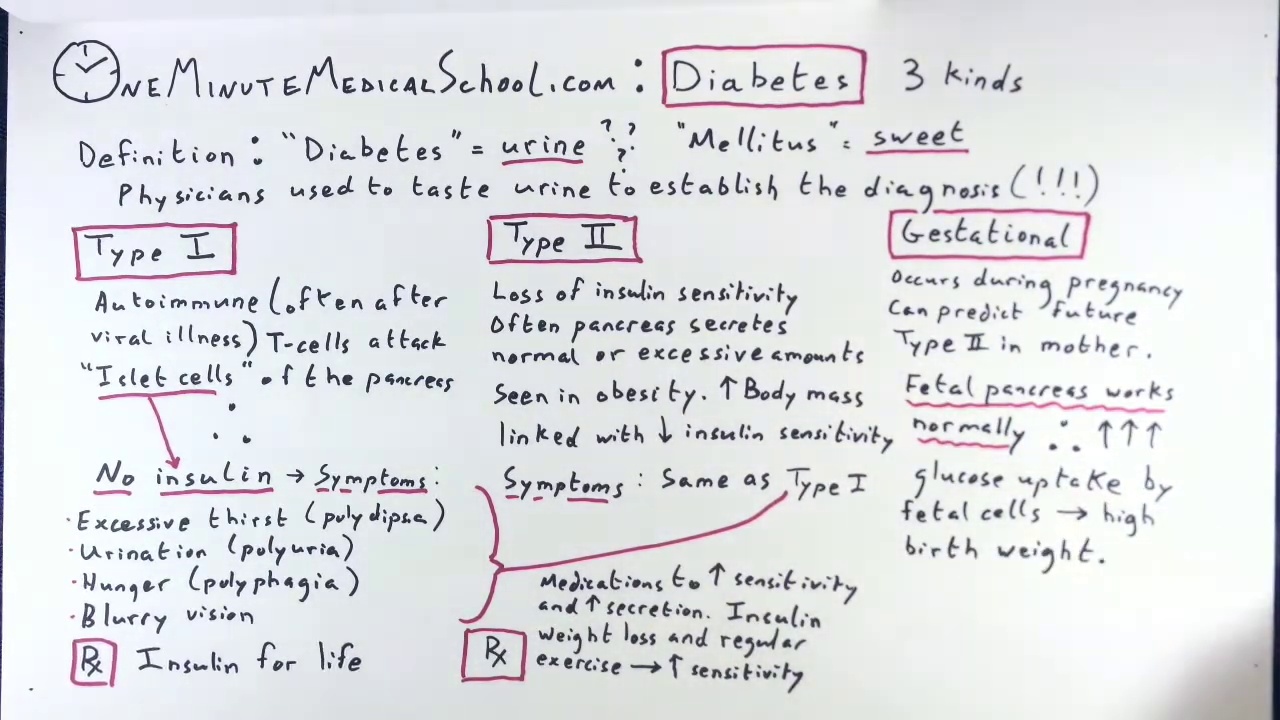 OneMinuteMedicalSchool.com : Diabetes 3 kinds
Definition : "Diabetes" = urine ? ? ? "Mellitus" = sweet
Physicians used to taste urine to establish the diagnosis (!!!)
Type I
Autoimmune (often after
viral illness) T-cells attack
"Islet cells" of the pancreas
∴
No insulin → Symptoms :
· Excessive thirst (polydipsia)
· Urination (polyuria)
· Hunger (polyphagia)
· Blurry vision
Rx Insulin for life
Type II
Loss of insulin sensitivity
Often pancreas secretes
normal or excessive amounts
Seen in obesity. ↑ Body mass
linked with ↓ insulin sensitivity
Symptoms : Same as Type I
Rx
Medications to ↑ sensitivity
and ↑ secretion. Insulin
weight loss and regular
exercise → ↑ sensitivity
Gestational
Occurs during pregnancy
Can predict future
Type II in mother.
Fetal pancreas works
normally ∴ ↑↑↑
glucose uptake by
fetal cells → high
birth weight.